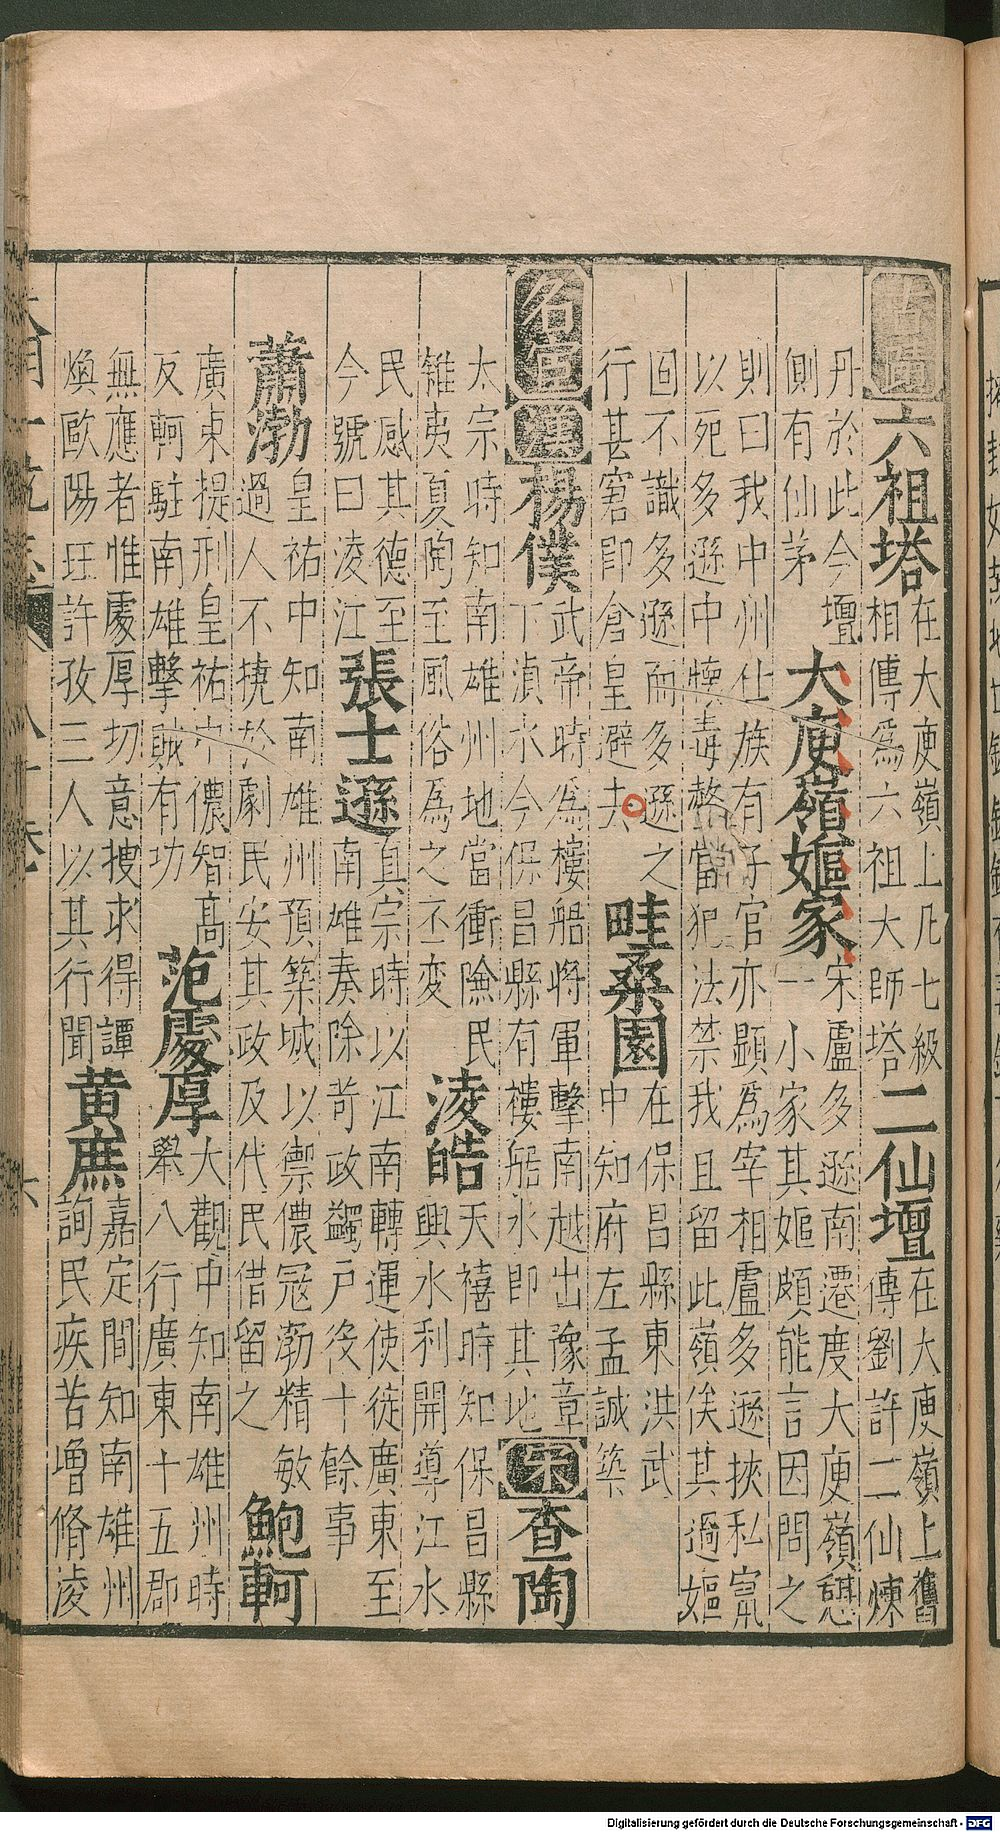 古蹟 六祖塔 在大庾嶺上凡七級
相傳爲六祖大師塔 二仙壇 在大庾嶺上舊
傳劉許二仙煉
丹於此今壇
側有仙茅 大庾嶺嫗家 宋盧多遜南遷度大庾嶺憇
一小家其嫗頗能言因問之
則曰我中州仕族有子官亦顯爲宰相盧多遜挾私竄
以死多遜中懷毒螫當犯法禁我且留此嶺俟其過嫗
囬不識多遜而多遜之
行甚窘即倉皇避去 畦桑園 在保昌縣東洪武
中知府左孟誠築
名宦 漢 楊僕 武帝時爲樓船將軍擊南越出豫章
下湞水今保昌縣有樓船水即其地 宋 查陶
太宗時知南雄州地當衝險民
雜夷夏陶至風俗爲之丕變 淩皓 天禧時知保昌縣
興水利開導江水
民感其德至
今號曰淩江 張士遜 真宗時以江南轉運使徒廣東至
南雄奏除苛政蠲戶役十餘事
蕭渤 皇祐中知南雄州預築城以禦儂冦渤精敏
過人不撓於劇民安其政及代民借留之 鮑軻
廣東提刑皇祐中儂智高
反軻駐南雄擊賊有功 范處厚 大觀中知南雄州時
舉八行廣東十五郡
無應者惟處厚切意搜求得譚
煥歐陽玨許孜三人以其行聞 黃庶 嘉定間知南雄州
詢民疾苦增脩淩
Digitalisierung gefördert durch die Deutsche Forschungsgemeinschaft - DFG